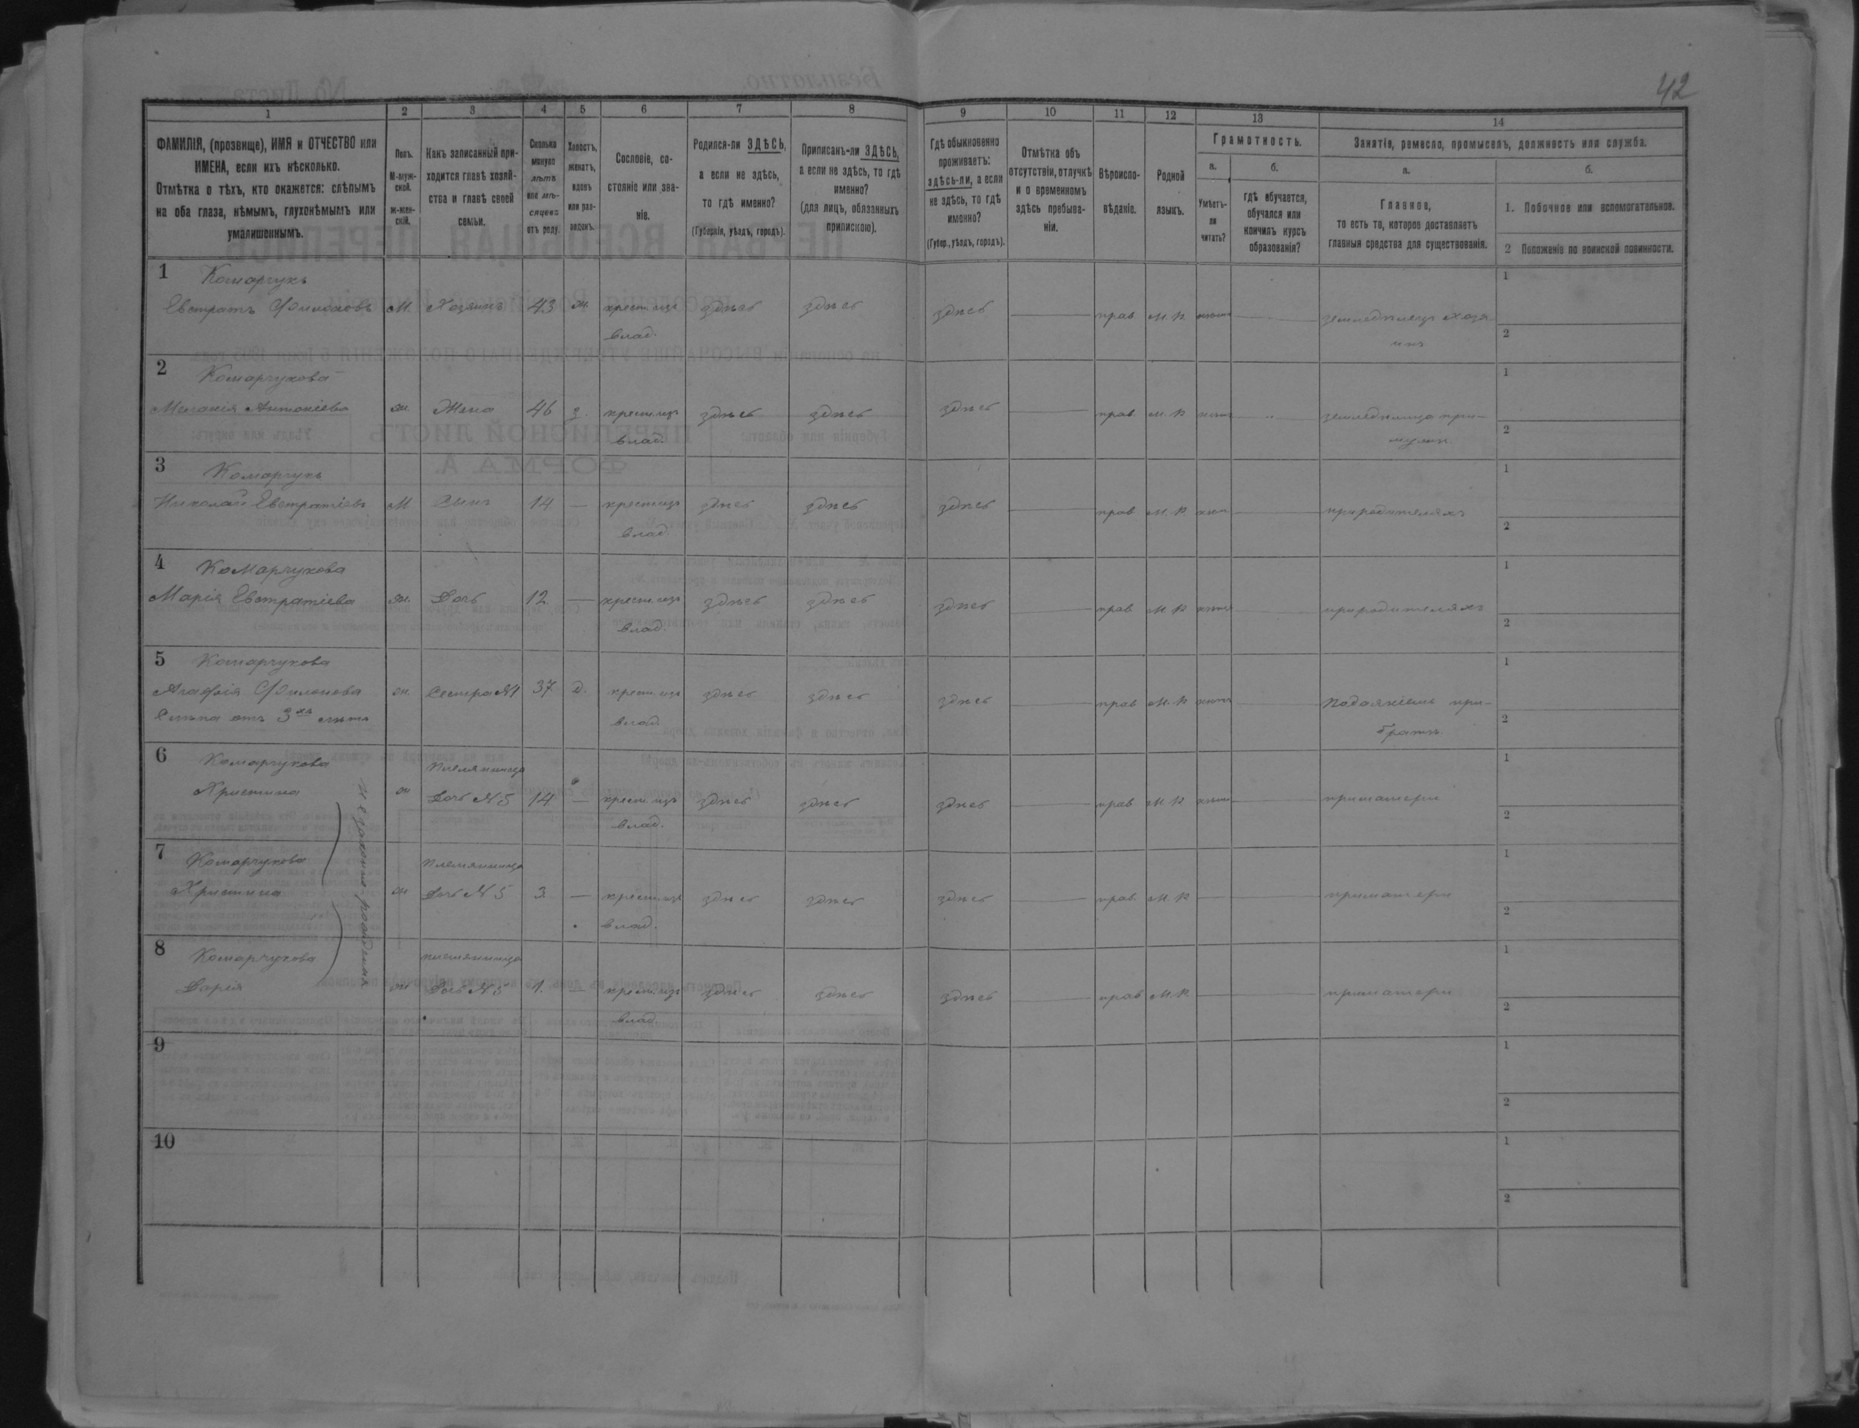 42
1 2 3 4 5 6 7 8 9 10 11 12 13 14
ФАМИЛІЯ, (прозвище), ИМЯ и ОТЧЕСТВО или
ИМЕНА, если ихъ нѣсколько.
Отмѣтка о тѣхъ, кто окажется: слѣпымъ
на оба глаза, нѣмымъ, глухонѣмымъ или
умалишеннымъ.
Полъ.
М-муж-
ской.
Ж-жен-
скій.
Какъ записанный при-
ходится главѣ хозяй-
ства и главѣ своей
семьи.
Сколько
минуло
лѣтъ
или мѣ-
сяцевъ
отъ роду.
Холостъ,
женатъ,
вдовъ
или раз-
веденъ.
Сословіе, со-
стояніе или зва-
ніе.
Родился-ли ЗДѢСЬ,
а если не здѣсь,
то гдѣ именно?
(Губернія, уѣздъ, городъ).
Приписанъ-ли ЗДѢСЬ,
а если не здѣсь, то гдѣ
именно?
(для лицъ, обязанныхъ
припискою).
Гдѣ обыкновенно
проживаетъ:
здѣсь-ли, а если
не здѣсь, то гдѣ
именно?
(Губер., уѣздъ, городъ).
Отмѣтка объ
отсутствіи, отлучкѣ
и о временномъ
здѣсь пребыва-
ніи.
Вѣроиспо-
вѣданіе.
Родной
языкъ.
Грамотность.
а.
Умѣетъ-
ли
читать?
б.
гдѣ обучается,
обучался или
кончилъ курсъ
образованія?
Занятія, ремесло, промыселъ, должность или служба.
а.
Главное,
то есть то, которое доставляетъ
главныя средства для существованія.
б.
1. Побочное или вспомогательное.
2 Положеніе по воинской повинности.
1 Комарчукъ
Евстратъ Филиповъ М Хозяинъ 43 ж. крест. изъ здѣсь здѣсь здѣсь прав М. Р земледѣлецъ хозя
влад. инъ
2 Комарчукова
Меланія Антоніева ж. Жена 46 з. крест. изъ здѣсь здѣсь здѣсь прав М. Р при-
влад
3 Комарчукъ
Николай Евстратіевъ М Сынъ 14 — крест. изъ здѣсь здѣсь здѣсь прав М. Р при родителяхъ
влад
4 Комарчукова
Марія Евстратіева ж. Дочь 12 — крест. изъ здѣсь здѣсь здѣсь прав М. Р при родителяхъ
влад.
5 Комарчукова
Агафія Филипова ж. Сестра №1 37 д. крест. изъ здѣсь здѣсь здѣсь прав М. Р при-
Слѣпа отъ 3хъ лѣтъ влад братѣ
6 Комарчукова Племянница
Христина ж Дочь №5 14 — крест. изъ здѣсь здѣсь здѣсь прав М. Р при матери
влад.
7 Комарчукова Племянница
Христина ж Дочь №5 3 — крест. изъ здѣсь здѣсь здѣсь прав М. Р при матери
влад.
8 Комарчукова племянница
Дарія ж Дочь №5 1. — крест. изъ здѣсь здѣсь здѣсь прав М. Р при матери
влад.
9
10